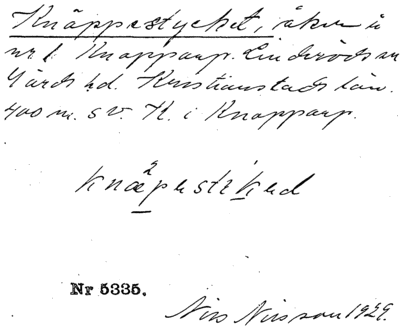 Knäppestycket, åker å
nr 1 Knopparp. Linderöds sn
Gärds hd. Kristianstads län.
400 m. s v. K. i Knopparp.
knæ̀pestiked
Nr 5335.
Nils Nilsson 1929.